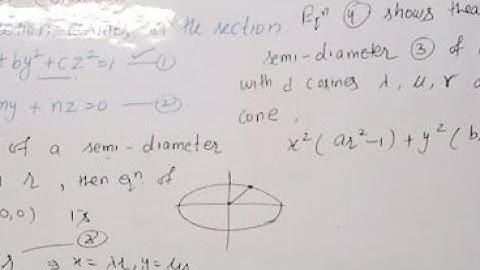 section of the section
+ by²+cz²=1 ①
my + nz=0 ②
of a semi-diameter
r, then eqⁿ of
0,0) is
③
⇒ x=λr, y=μr
Eqⁿ ④ shows
semi-diameter ③ of
with d cosines λ, μ, γ
cone,
x²(ar²-1)+y²(b